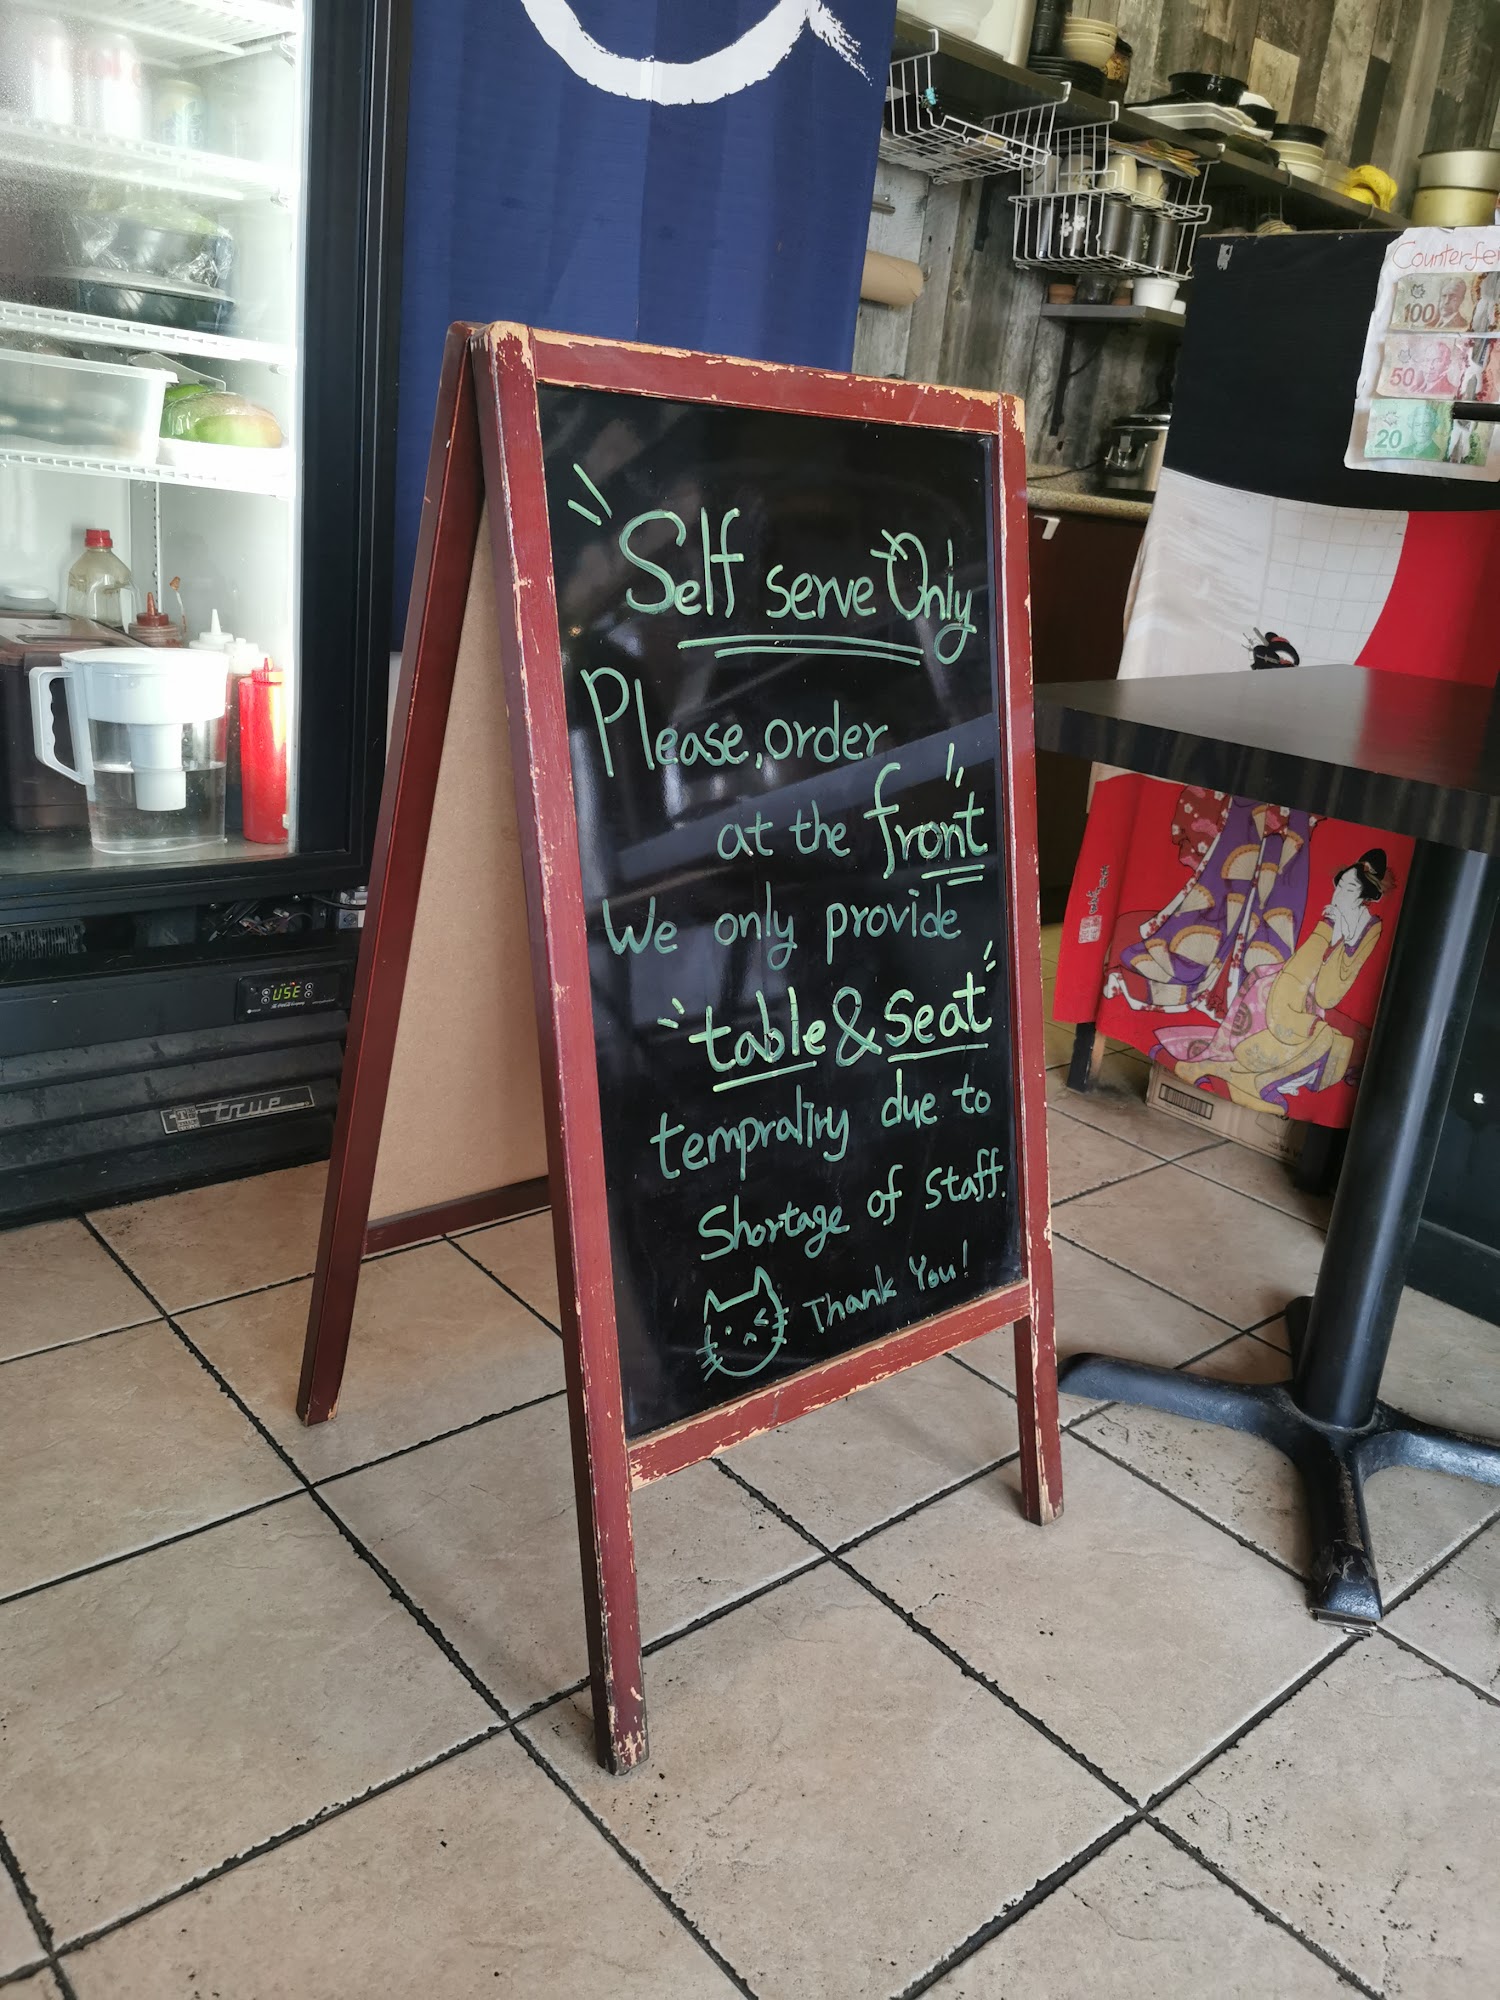 Self serve Only
Please, order
at the front
We only provide
table & seat
tempraliry due to
Shortage of staff.
Thank You!
Counterfe
100
50
20
USE
true